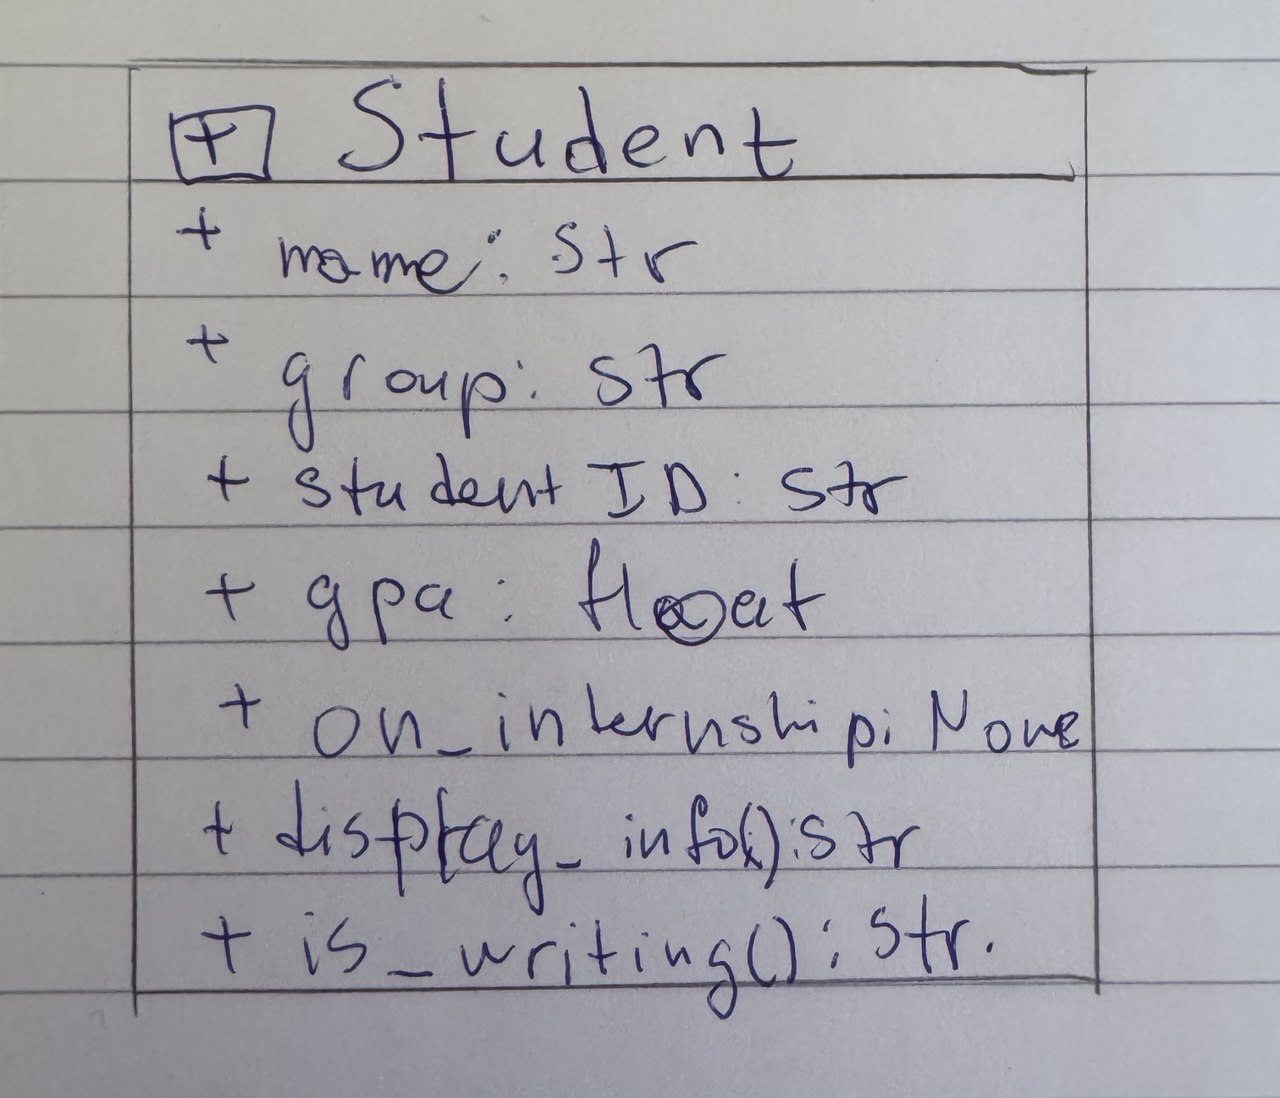 + Student
+ name: str
+ group: str
+ student ID: str
+ gpa: float
+ on_internship: None
+ display_info(): str
+ is_writing(): str.